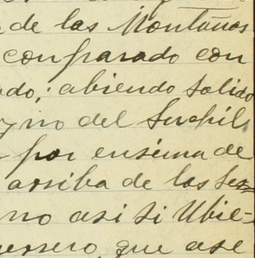 de las Montañas
comparado con
do; abiendo Salido
no del
por ensima de
arriba de los
no asi si Ubie-
que ase